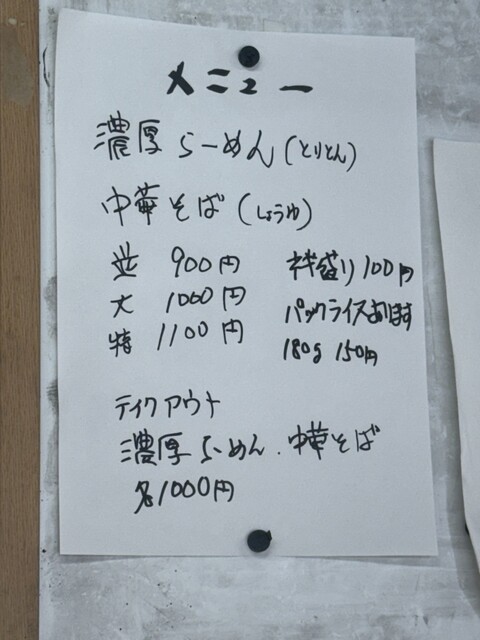 メニュー
濃厚らーめん(とりとん)
中華そば(しょうゆ)
並 900円
大 1000円
特 1100円
ネギ盛り100円
パックライスあります
180g 150円
テイクアウト
濃厚らーめん、中華そば
各1000円